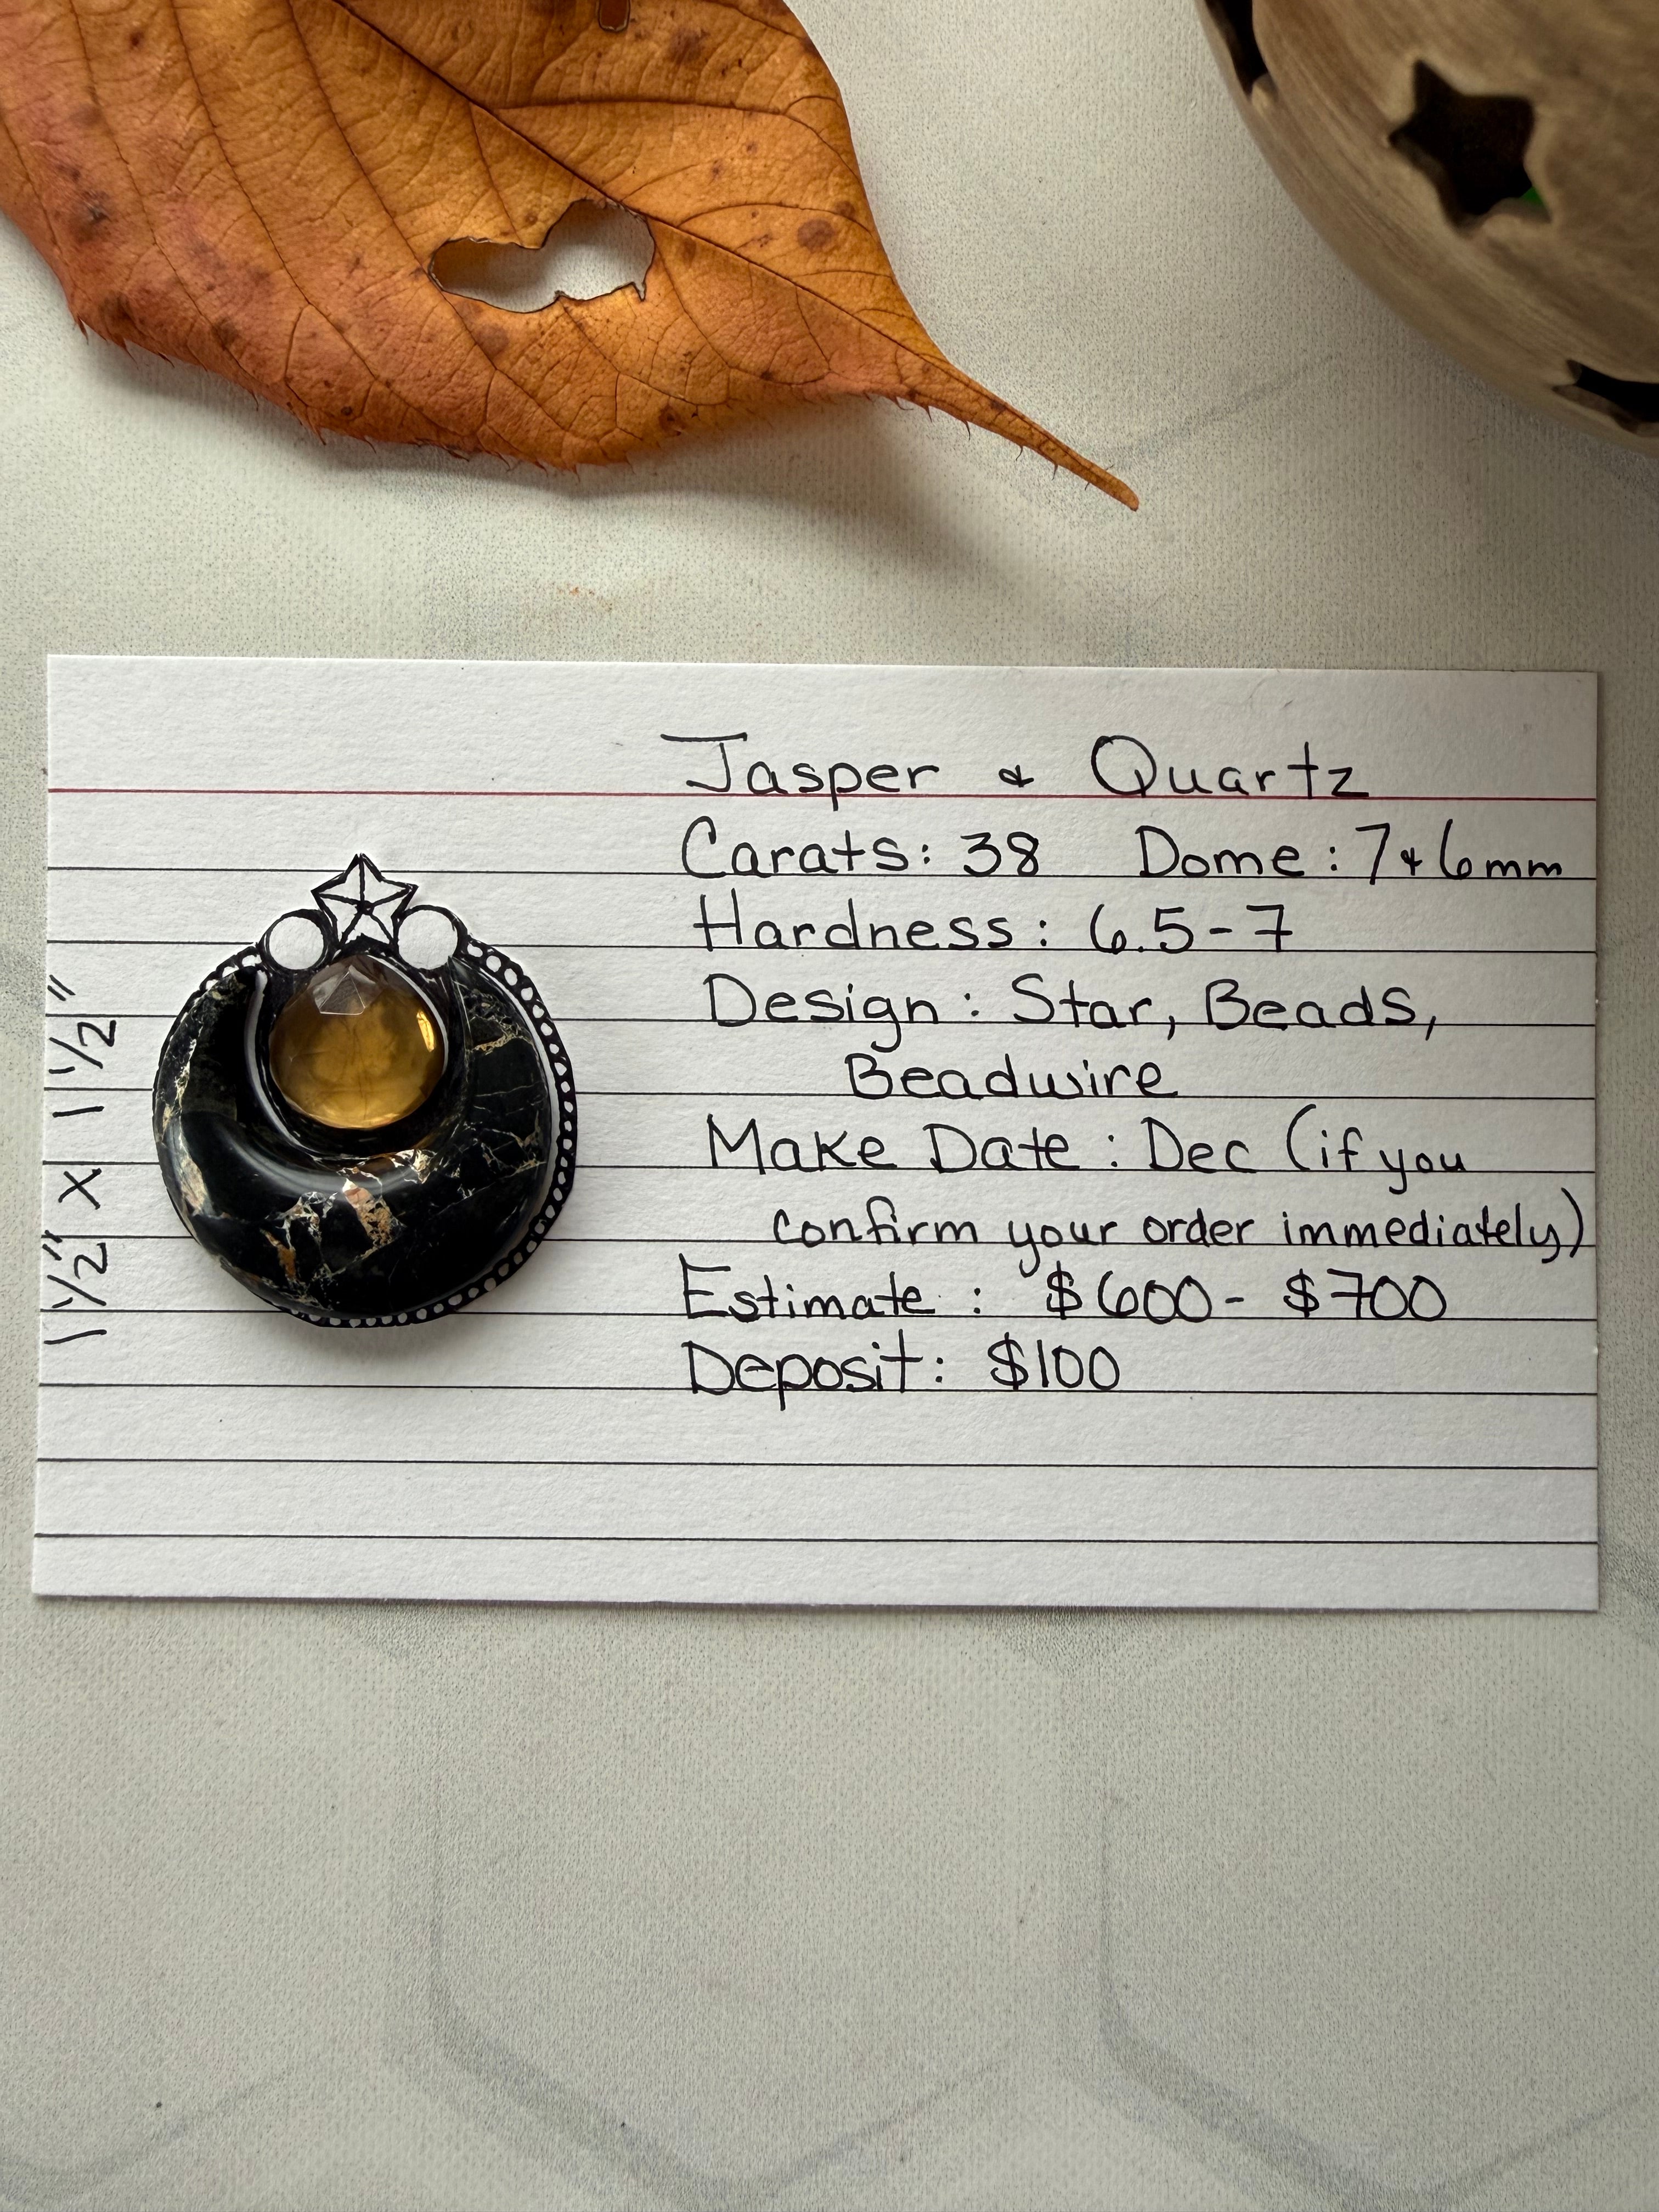 Jasper & Quartz
Carats: 38 Dome: 7 & 6mm
Hardness: 6.5-7
Design: Star, Beads,
Beadwire
Make Date: Dec (if you
confirm your order immediately)
Estimate: $600- $700
Deposit: $100
1 1/2" X 1 1/2"